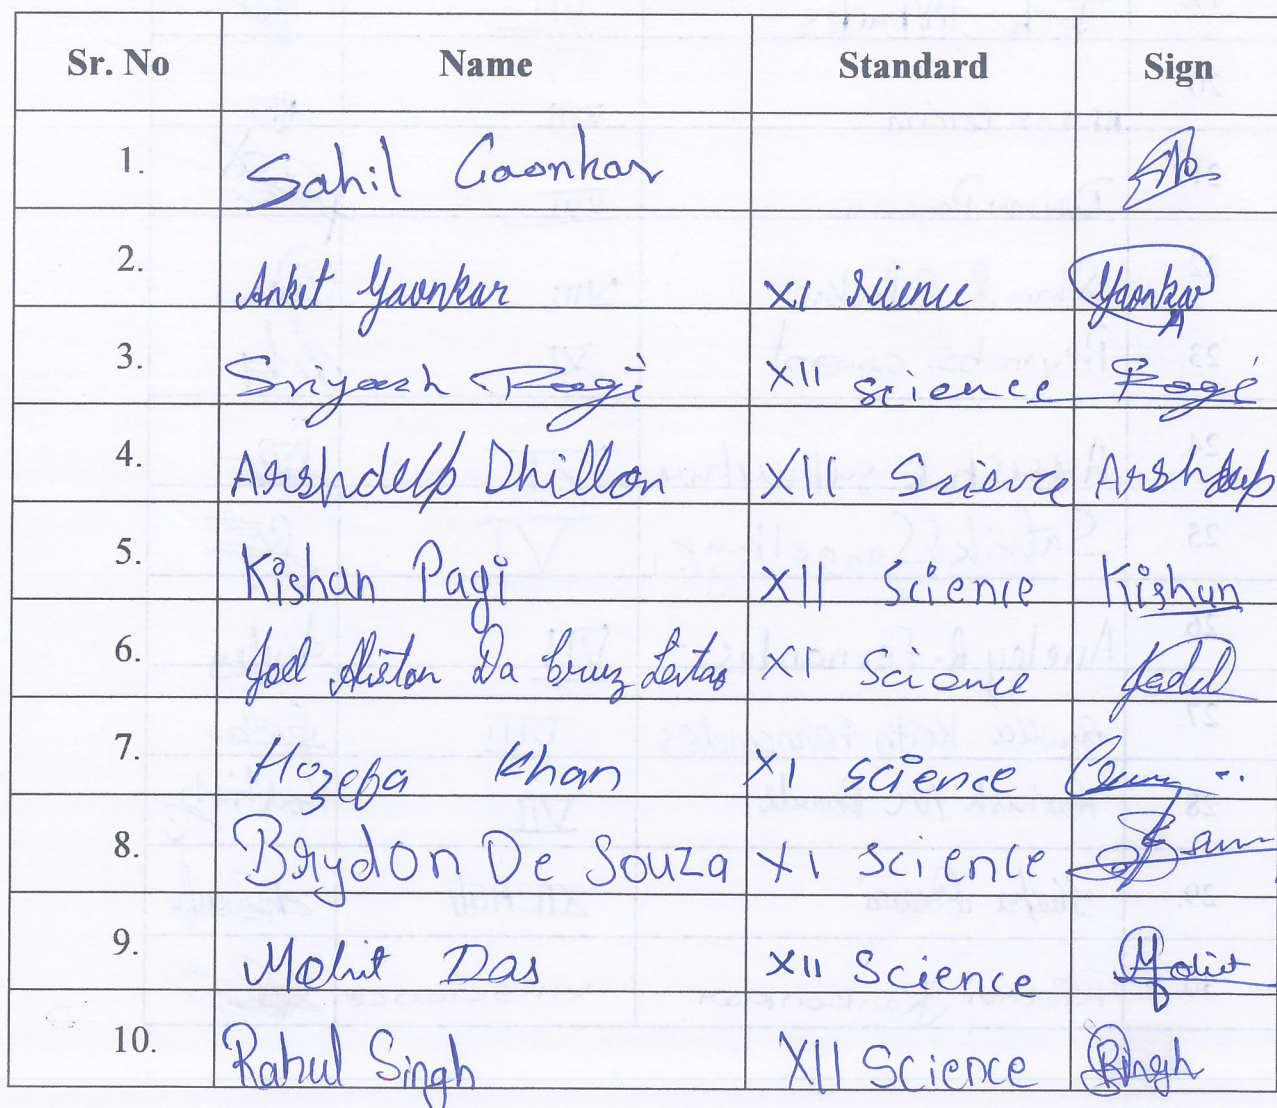 Sr. No Name Standard Sign
1. Sahil Gaonkar
2. Ankit Gaonkar XI science Gaonkar A
3. Sriyash Pagi XII science Pagi
4. Arshdeep Dhillon XII Science Arshdeep
5. Kishan Pagi XII Science Kishan
6. Joel Aliston Da Cruz Leitao XI Science
7. Hozefa Khan XI science
8. Brydon De Souza XI science
9. Mohit Das XII Science Mohit
10. Rahul Singh XII Science RSingh